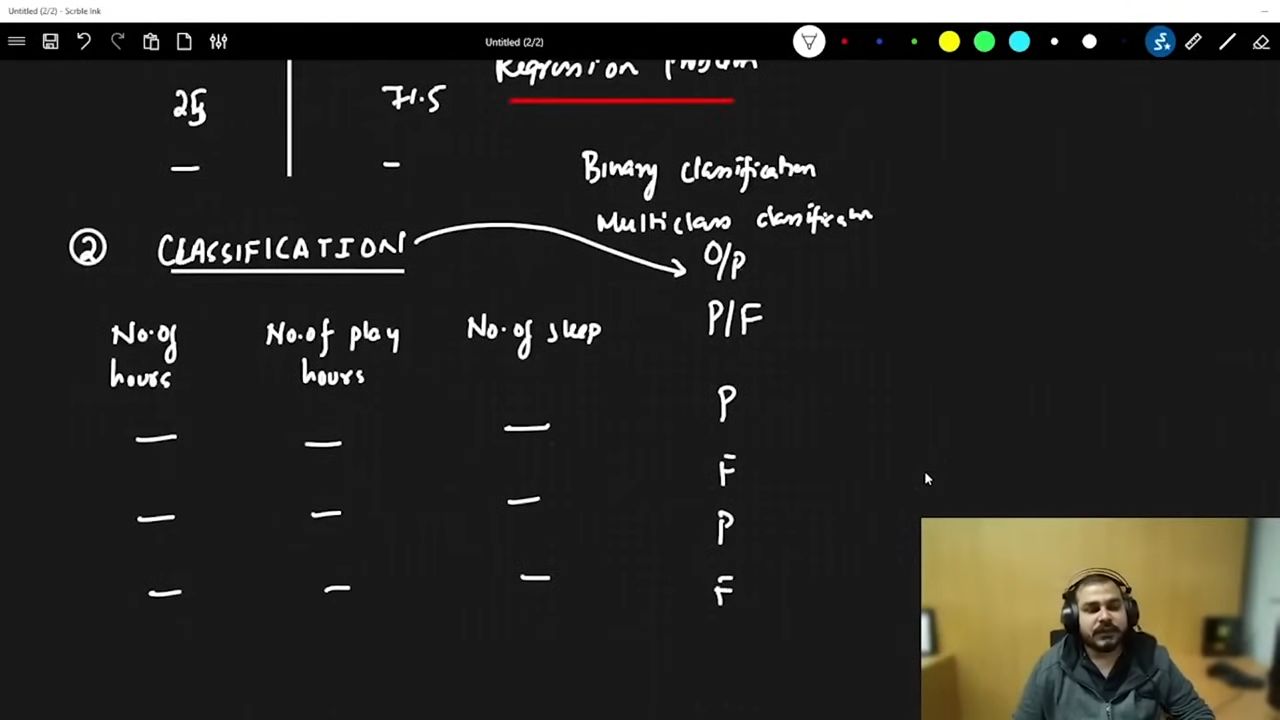 Untitled (2/2) - Scrble Ink
Untitled (2/2)
Regression Problem
25 71.5
Binary classification
Multiclass classification
② CLASSIFICATION
O/P
P/F
No. of hours
No. of play hours
No. of sleep
P
F
P
F